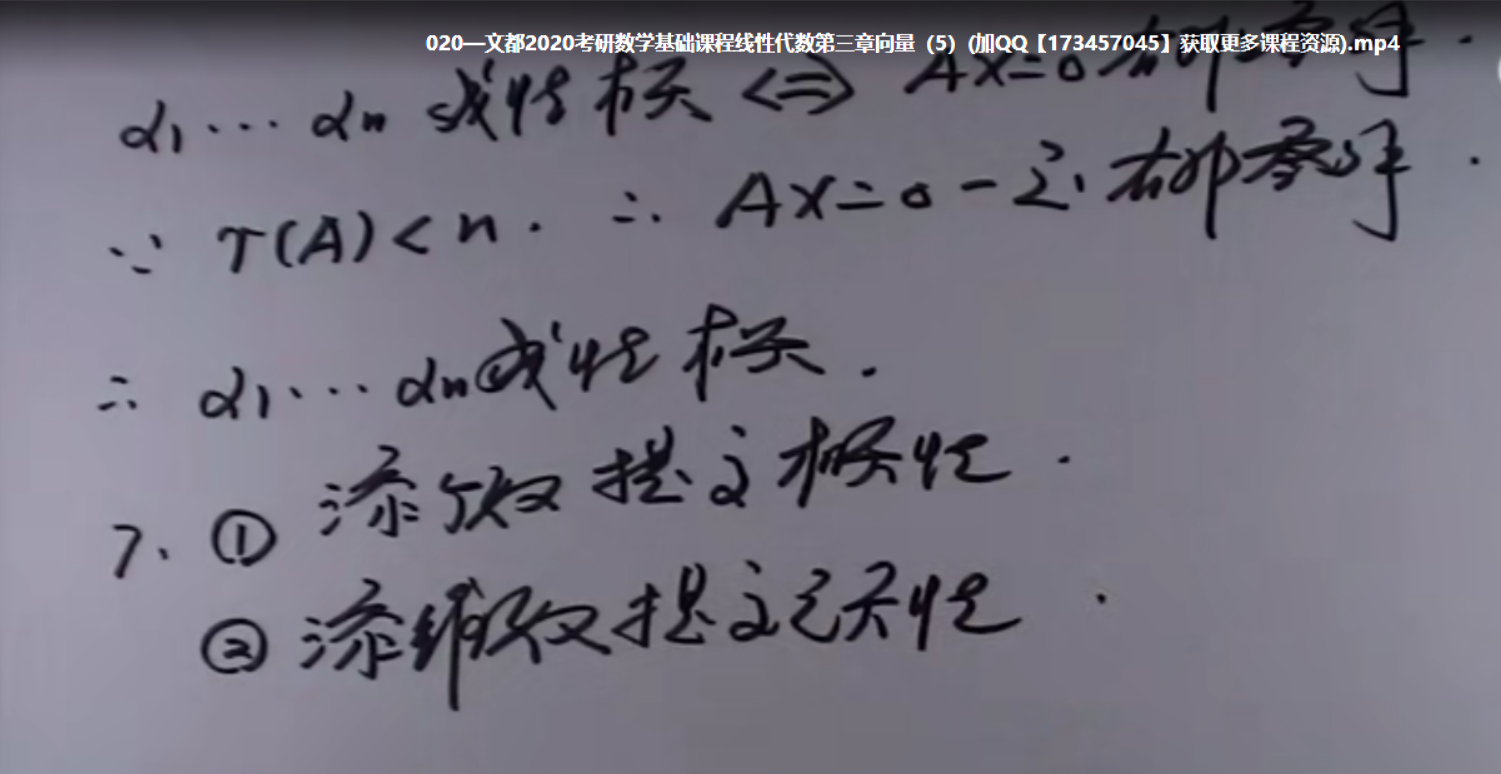 020—文都2020考研数学基础课程线性代数第三章向量（5）(加QQ【173457045】获取更多课程资源).mp4
α1…αn 线性相关 <=> AX=0 有非零解.
∵ r(A)<n. ∴ AX=0一定有非零解.
∴ α1…αn线性相关.
7. ① 添个数提高相关性.
② 添维数提高无关性.